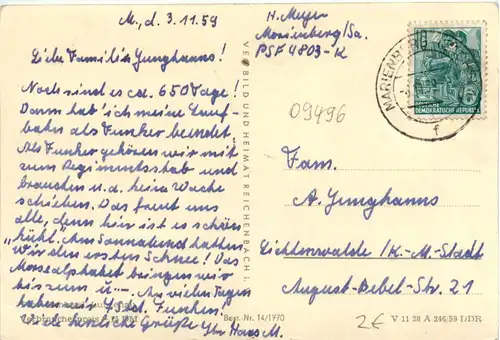 M., d. 3.11.59
Liebe Familie Junghanns!
Noch sind es ca. 650 Tage!
Dann hab' ich meine Lauf-
bahn als Funker beendet.
Als Funker gehören wir mit
zum Regimentsstab und
brauchen u.a. keine Wache
schieben. Das freut uns
alle, denn hier ist es schön
"kühl". Am Sonnabend hatten
wir den ersten Schnee! Das
Morsealphabet bringen wir
bis zum u... An vielen Tagen
haben wir 7 Std. Funken!
Viele herzliche Grüße Ihr Hans M.
Verbraucherpreis DM
Best.-Nr. 14/1970
VEB BILD UND HEIMAT REICHENBACH i. V.
H. Meyer
Marienberg/Sa.
PSF 4803-K
MARIENBERG
f
DEMOKRATISCHE REPUBLIK
5
09496
Fam.
A. Junghanns
Lichtenwalde /K.-M.-Stadt
August-Bebel-Str. 21
2€
V 11 28 A 246/59 DDR